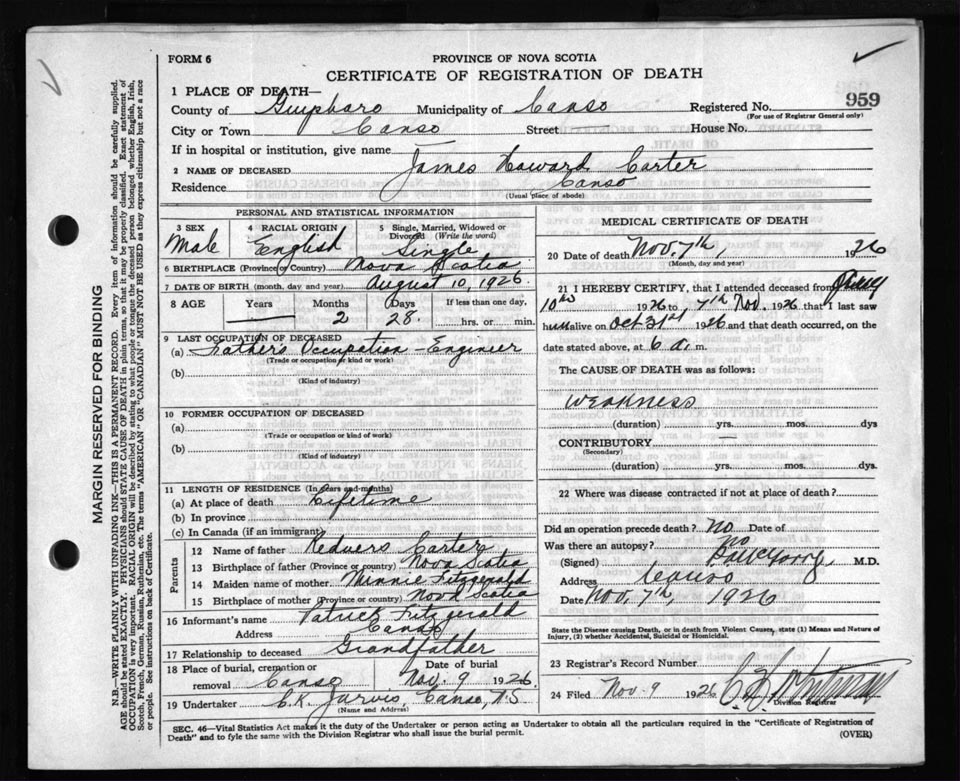 FORM 6
PROVINCE OF NOVA SCOTIA
CERTIFICATE OF REGISTRATION OF DEATH
1 PLACE OF DEATH—
County of Guysboro Municipality of Canso Registered No. 959
(For use of Registrar General only)
City or Town Canso Street House No.
If in hospital or institution, give name —
2 NAME OF DECEASED James Howard Carter
Residence Canso
(Usual place of abode)
PERSONAL AND STATISTICAL INFORMATION
3 SEX 4 RACIAL ORIGIN 5 Single, Married, Widowed or Divorced (Write the word)
Male English Single
6 BIRTHPLACE (Province or Country) Nova Scotia
7 DATE OF BIRTH (month, day and year) August 10, 1926.
8 AGE Years Months Days If less than one day,
— 2 28. hrs. or min.
9 LAST OCCUPATION OF DECEASED
(a) Father's Occupation - Engineer
(Trade or occupation or kind of work)
(b)
(Kind of industry)
10 FORMER OCCUPATION OF DECEASED
(a)
(Trade or occupation or kind of work)
(b)
(Kind of industry)
11 LENGTH OF RESIDENCE (In years and months)
(a) At place of death Lifetime
(b) In province
(c) In Canada (if an immigrant)
Parents
12 Name of father Redvers Carter
13 Birthplace of father (Province or country) Nova Scotia
14 Maiden name of mother Minnie Fitzgerald
15 Birthplace of mother (Province or country) Nova Scotia
16 Informant's name Patrick Fitzgerald
Address Canso
17 Relationship to deceased Grandfather
18 Place of burial, cremation or removal Canso Date of burial Nov. 9 1926.
19 Undertaker C.K. Jarvis, Canso, N.S
(Name and Address)
MEDICAL CERTIFICATE OF DEATH
20 Date of death Nov. 7th, 1926
(Month, day and year)
21 I HEREBY CERTIFY, that I attended deceased from
10th 1926 to 7th Nov. 1926 that I last saw
him alive on Oct 31st 1926 and that death occurred, on the
date stated above, at 6 a. m.
The CAUSE OF DEATH was as follows:
Weakness
(duration) yrs. mos. dys
CONTRIBUTORY —
(Secondary)
(duration) yrs. mos. dys.
22 Where was disease contracted if not at place of death?
Did an operation precede death? No Date of
Was there an autopsy? No
(Signed) M.D.
Address Canso
Date Nov. 7th, 1926
State the Disease causing Death, or in death from Violent Causes, state (1) Means and Nature of
Injury, (2) whether Accidental, Suicidal or Homicidal.
23 Registrar's Record Number
24 Filed Nov. 9 1926
Division Registrar
SEC. 46—Vital Statistics Act makes it the duty of the Undertaker or person acting as Undertaker to obtain all the particulars required in the "Certificate of Registration of
Death" and to fyle the same with the Division Registrar who shall issue the burial permit. (OVER)
MARGIN RESERVED FOR BINDING
N.B.—WRITE PLAINLY WITH UNFADING INK—THIS IS A PERMANENT RECORD. Every item of information should be carefully supplied.
AGE should be stated EXACTLY. PHYSICIANS should STATE CAUSE OF DEATH in plain terms, so that it may be properly classified. Exact statement of
OCCUPATION is very important. RACIAL ORIGIN will be described by stating to what people or tongue the deceased person belonged whether English, Irish,
Scotch, French, German, Russian, Ruthenian, etc. The terms "AMERICAN" OR "CANADIAN" MUST NOT BE USED as they express citizenship but not a race
or people. See instructions on back of Certificate.